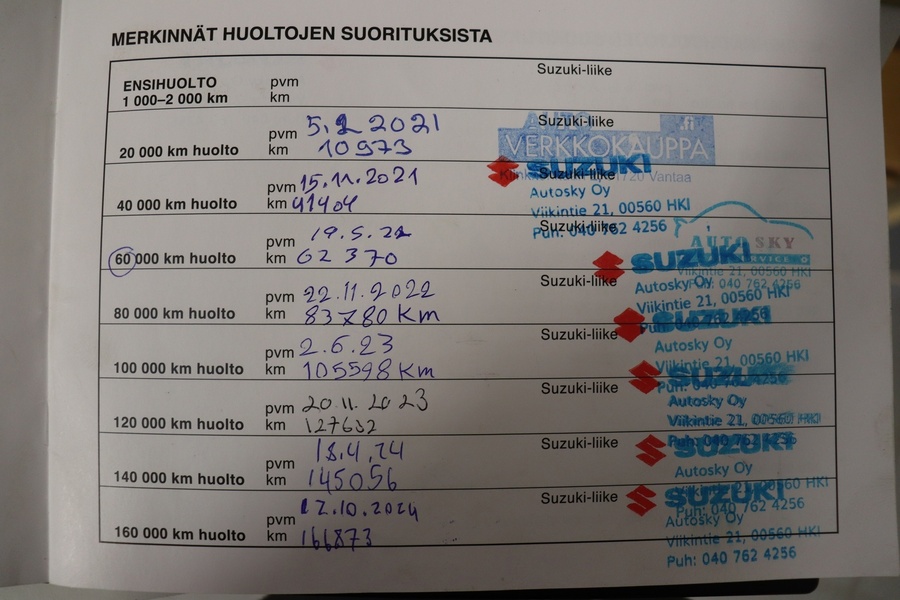 MERKINNÄT HUOLTOJEN SUORITUKSISTA
ENSIHUOLTO pvm Suzuki-liike
1 000–2 000 km km
pvm 5.2 2021 Suzuki-liike
20 000 km huolto km 10973
VERKKOKAUPPA
SUZUKI
pvm 15.11.2021 Suzuki-liike 1720 Vantaa
40 000 km huolto km 41404
Autosky Oy
Viikintie 21, 00560 HKI
Puh: 040 762 4256
pvm 19.5.22 Suzuki-liike
60 000 km huolto km 62 370
AUTO SKY
SERVICE O
SUZUKI
Viikintie 21, 00560 HKI
Puh: 040 762 4256
pvm 22.11.2022 Suzuki-liike
80 000 km huolto km 83780 Km
Autosky Oy
Viikintie 21, 00560 HKI
Puh: 040 762 4256
SUZUKI
pvm 2.6.23 Suzuki-liike
100 000 km huolto km 105598 Km
Autosky Oy
Viikintie 21, 00560 HKI
Puh: 040 762 4256
SUZUKI
pvm 20.11.2023 Suzuki-liike
120 000 km huolto km 127632
Autosky Oy
Viikintie 21, 00560 HKI
Puh: 040 762 4256
SUZUKI
pvm 18.4.24 Suzuki-liike
140 000 km huolto km 145056
Autosky Oy
Viikintie 21, 00560 HKI
Puh: 040 762 4256
SUZUKI
pvm 12.10.2024 Suzuki-liike
160 000 km huolto km 166873
Autosky Oy
Viikintie 21, 00560 HKI
Puh: 040 762 4256